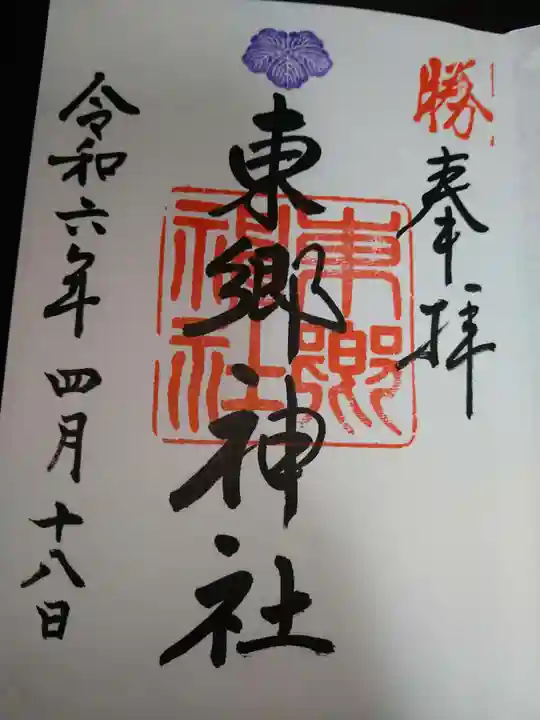 勝
奉拝
東郷神社
東郷
神社
令和六年 四月十八日